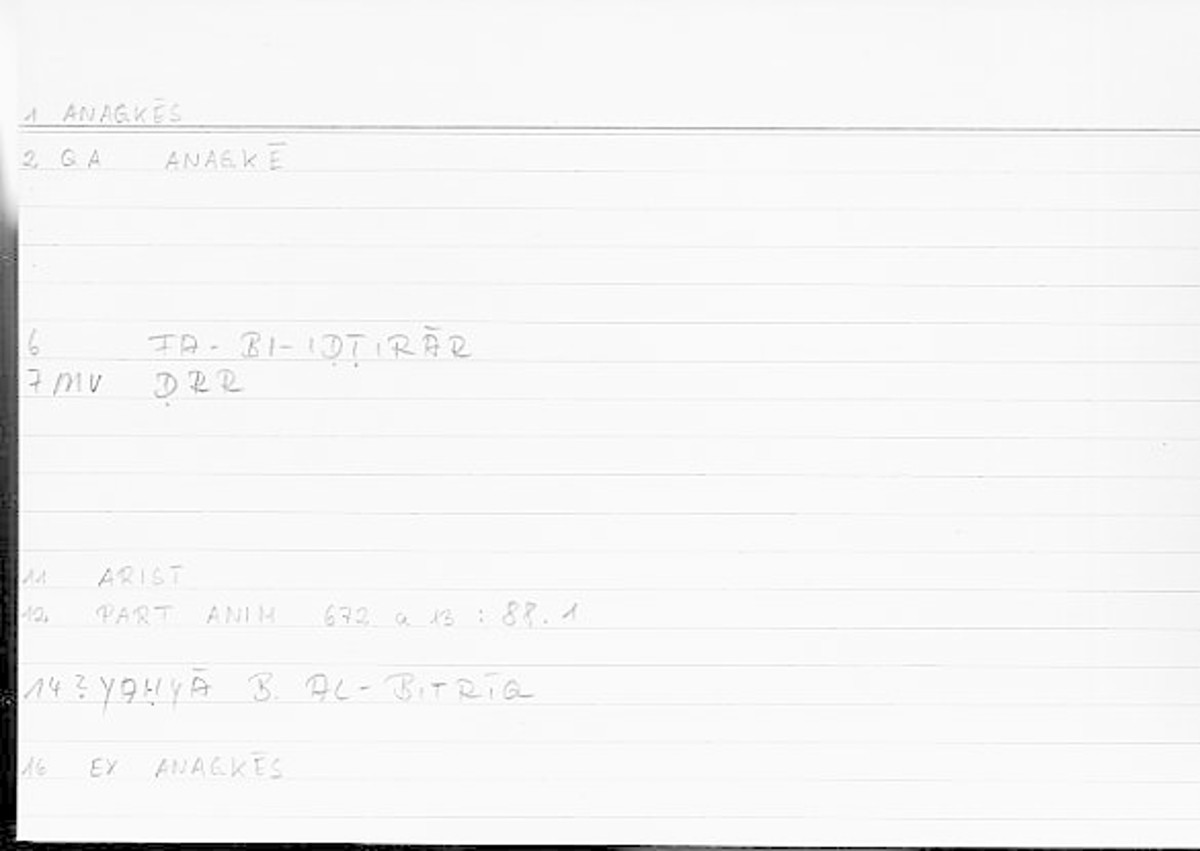 1 ANAGKĒS
2 GA ANAGKĒ
6 FA-BI-IḌṬIRĀR
7 MV ḌRR
11 ARIST
12 PART ANIM 672 a 13 : 88.1
14 ? YAḤYĀ B. AL-BIṬRĪQ
16 EX ANAGKĒS